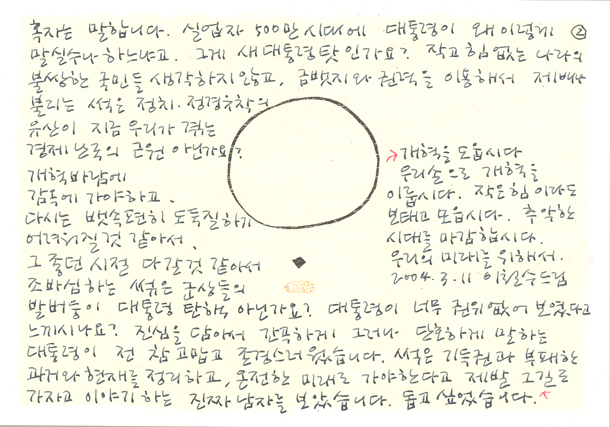 혹자는 말합니다. 실업자 500만 시대에 대통령이 왜 이렇게 ②
말실수나 하느냐고. 그게 새 대통령 탓인가요? 작고 힘없는 나라의
불쌍한 국민들 생각하지 않고, 금뱃지와 권력을 이용해서 제 배나
불리는 썩은 정치·정경유착의
유산이 지금 우리가 겪는
경제난국의 근원 아닌가요?
개혁바람에
감옥에 가야하고.
다시는 뱃속편히 도둑질하기
어려워질 것 같아서.
그 좋던 시절 다 갈 것 같아서
조바심하는 썩은 군상들의
발버둥이 대통령 탄핵 아닌가요? 대통령이 너무 권위없어 보였다고
느끼시나요? 진심을 담아서 간곡하게 그러나 단호하게 말하는
대통령이 전 참 고맙고 존경스러웠습니다. 썩은 기득권과 부패한
과거와 현재를 정리하고, 온전한 미래로 가야한다고 제발 그 길로
가자고 이야기하는 진짜 남자를 보았습니다. 돕고 싶었습니다.
개혁을 도웁시다
우리손으로 개혁을
이룹시다. 작은 힘이라도
보태고 모읍시다. 추악한
시대를 마감합시다.
우리의 미래를 위해서.
2004. 3. 11 이철수드림